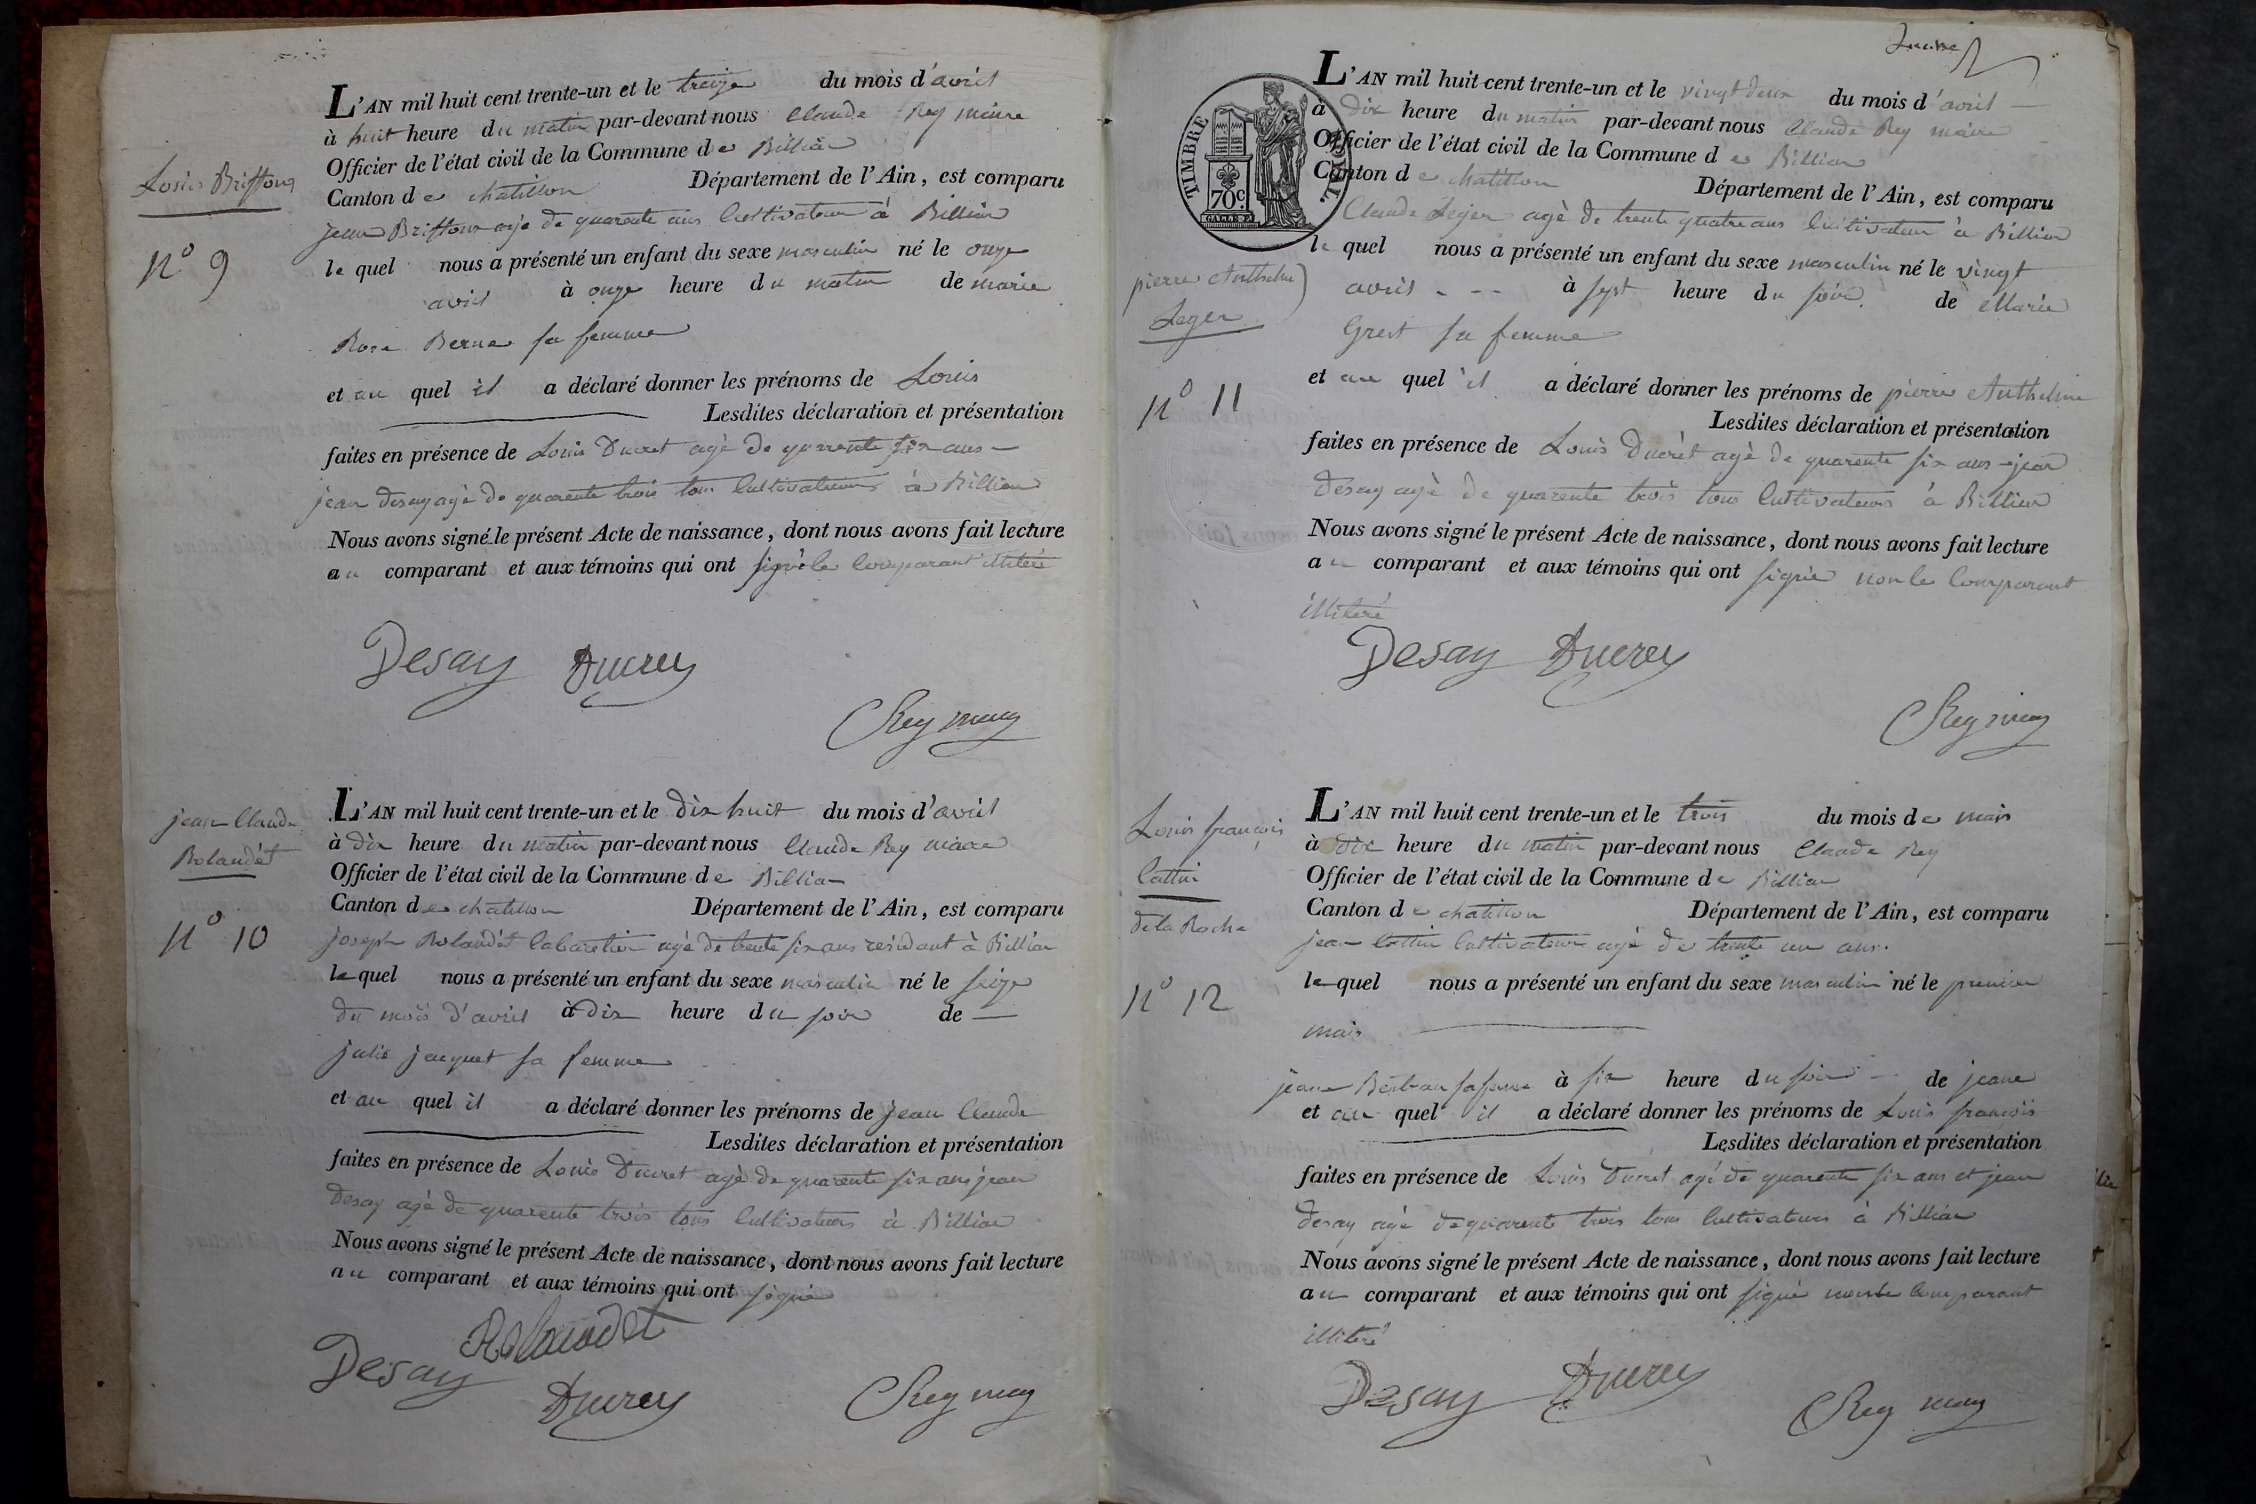 Louis Briffoux
N° 9
L'AN mil huit cent trente-un et le treize du mois d'avril
à huit heure du matin par-devant nous Claude Rey maire
Officier de l'état civil de la Commune de Billia
Canton de chatillon Département de l'Ain, est comparu
jean Briffoux agé de quarente ans Cultivateur à Billia
lequel nous a présenté un enfant du sexe masculin né le onze
avril à onze heure du matin de marie
Rose Berne sa femme
et au quel il a déclaré donner les prénoms de Louis
Lesdites déclaration et présentation
faites en présence de Louis Ducret agé de quarente six ans
jean desay agé de quarente trois tous Cultivateurs à Billia
Nous avons signé le présent Acte de naissance, dont nous avons fait lecture
au comparant et aux témoins qui ont signé le Comparant illiteré
Desay Ducrey
Rey
jean Claude
Rolandèt
N° 10
L'AN mil huit cent trente-un et le dix huit du mois d'avril
à dix heure du matin par-devant nous Claude Rey maire
Officier de l'état civil de la Commune de Billia
Canton de chatillon Département de l'Ain, est comparu
joseph Rolandèt Cabaretier agé de trente six ans residant à Billia
lequel nous a présenté un enfant du sexe masculin né le seize
du mois d'avril à dix heure du soir de
julie jacquet sa femme
et au quel il a déclaré donner les prénoms de jean Claude
Lesdites déclaration et présentation
faites en présence de Louis Ducret agé de quarente six ans jean
desay agé de quarente trois tous Cultivateurs à Billia
Nous avons signé le présent Acte de naissance, dont nous avons fait lecture
au comparant et aux témoins qui ont signé
Rolandèt
Desay
Ducrey Rey
TIMBRE ROYAL
70c.
pierre Anthelme
Leger
N° 11
L'AN mil huit cent trente-un et le vingt deux du mois d'avril
à dix heure du matin par-devant nous Claude Rey maire
Officier de l'état civil de la Commune de Billia
Canton de chatillon Département de l'Ain, est comparu
Claude Leger agé de trente quatre ans Cultivateur à Billia
le quel nous a présenté un enfant du sexe masculin né le vingt
avril à sept heure du soir de Marie
Grest sa femme
et au quel il a déclaré donner les prénoms de pierre Anthelme
Lesdites déclaration et présentation
faites en présence de Louis Ducrèt agé de quarente six ans jean
desay agé de quarente trois tous Cultivateurs à Billia
Nous avons signé le présent Acte de naissance, dont nous avons fait lecture
au comparant et aux témoins qui ont signé non le Comparant
illiteré
Desay Ducrey
Rey
Louis françois
Cottin
de la Roche
N° 12
L'AN mil huit cent trente-un et le trois du mois de mais
à dix heure du matin par-devant nous Claude Rey
Officier de l'état civil de la Commune de Billia
Canton de chatillon Département de l'Ain, est comparu
jean Cottin Cultivateur agé de trente un ans
lequel nous a présenté un enfant du sexe masculin né le premier
mais
jeane sa fame à six heure du soir de jeane
et au quel il a déclaré donner les prénoms de Louis françois
Lesdites déclaration et présentation
faites en présence de Louis Ducret agé de quarente six ans et jean
desay agé de quarente trois tous Cultivateurs à Billia
Nous avons signé le présent Acte de naissance, dont nous avons fait lecture
au comparant et aux témoins qui ont signé non le Comparant
illiteré
Desay Ducrey
Rey